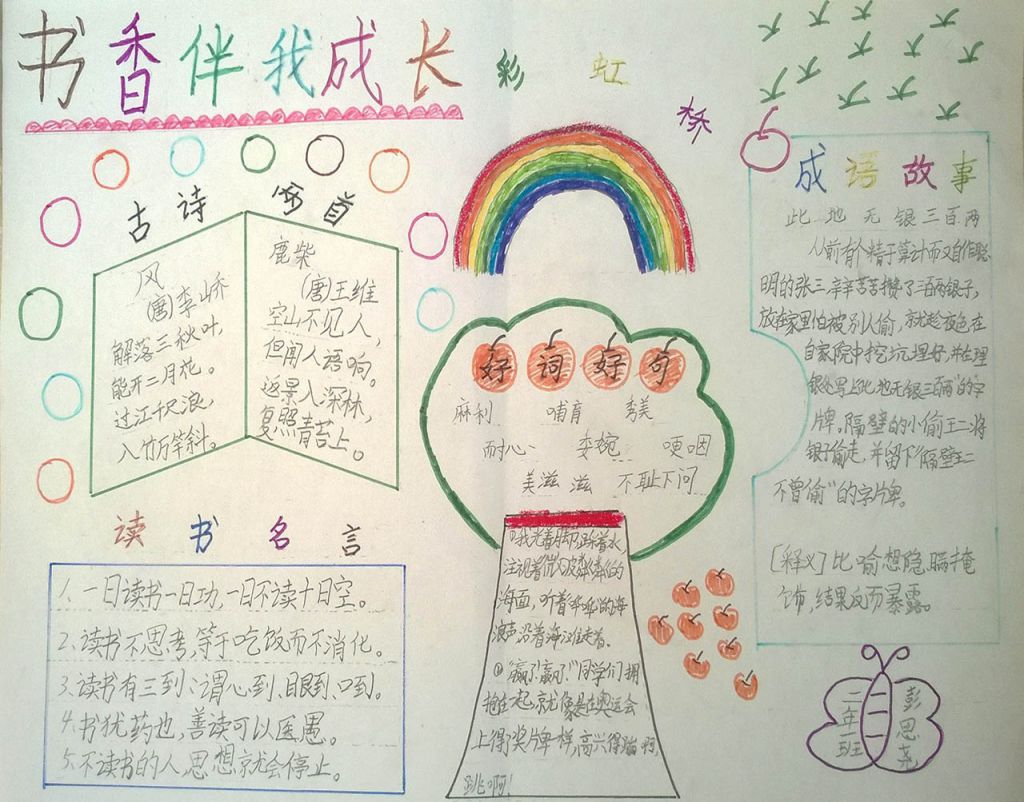 书香伴我成长
彩虹桥
古诗两首
风
(唐)李峤
解落三秋叶,
能开二月花。
过江千尺浪,
入竹万竿斜。
鹿柴
(唐)王维
空山不见人,
但闻人语响。
返景入深林,
复照青苔上。
读书名言
1、一日读书一日功,一日不读十日空。
2、读书不思考,等于吃饭而不消化。
3、读书有三到:谓心到、眼到、口到。
4、书犹药也,善读可以医愚。
5、不读书的人,思想就会停止。
好词好句
麻利 哺育
耐心 委婉 哽咽
美滋滋 不耻下问
①我光着脚丫,踩着水
注视着微波粼粼的
海面,听着哗哗的海
浪声沿着海滩走着。
②“赢了!赢了!”同学们拥
抱在一起,就像是在奥运会
上得了奖牌一样,高兴得
跳啊!
成语故事
此地无银三百两
从前有个精于算计而又自作聪
明的张三,辛辛苦苦攒了三百两银子,
放在家里怕被别人偷,就趁夜色在
自家院中挖坑埋好,并在埋
银处写上“此地无银三百两”的字
牌。隔壁的小偷王二将
银子偷走,并留下“隔壁王二
不曾偷”的字牌。
[释义]比喻想隐瞒掩
饰,结果反而暴露。
二年一班
彭思尧